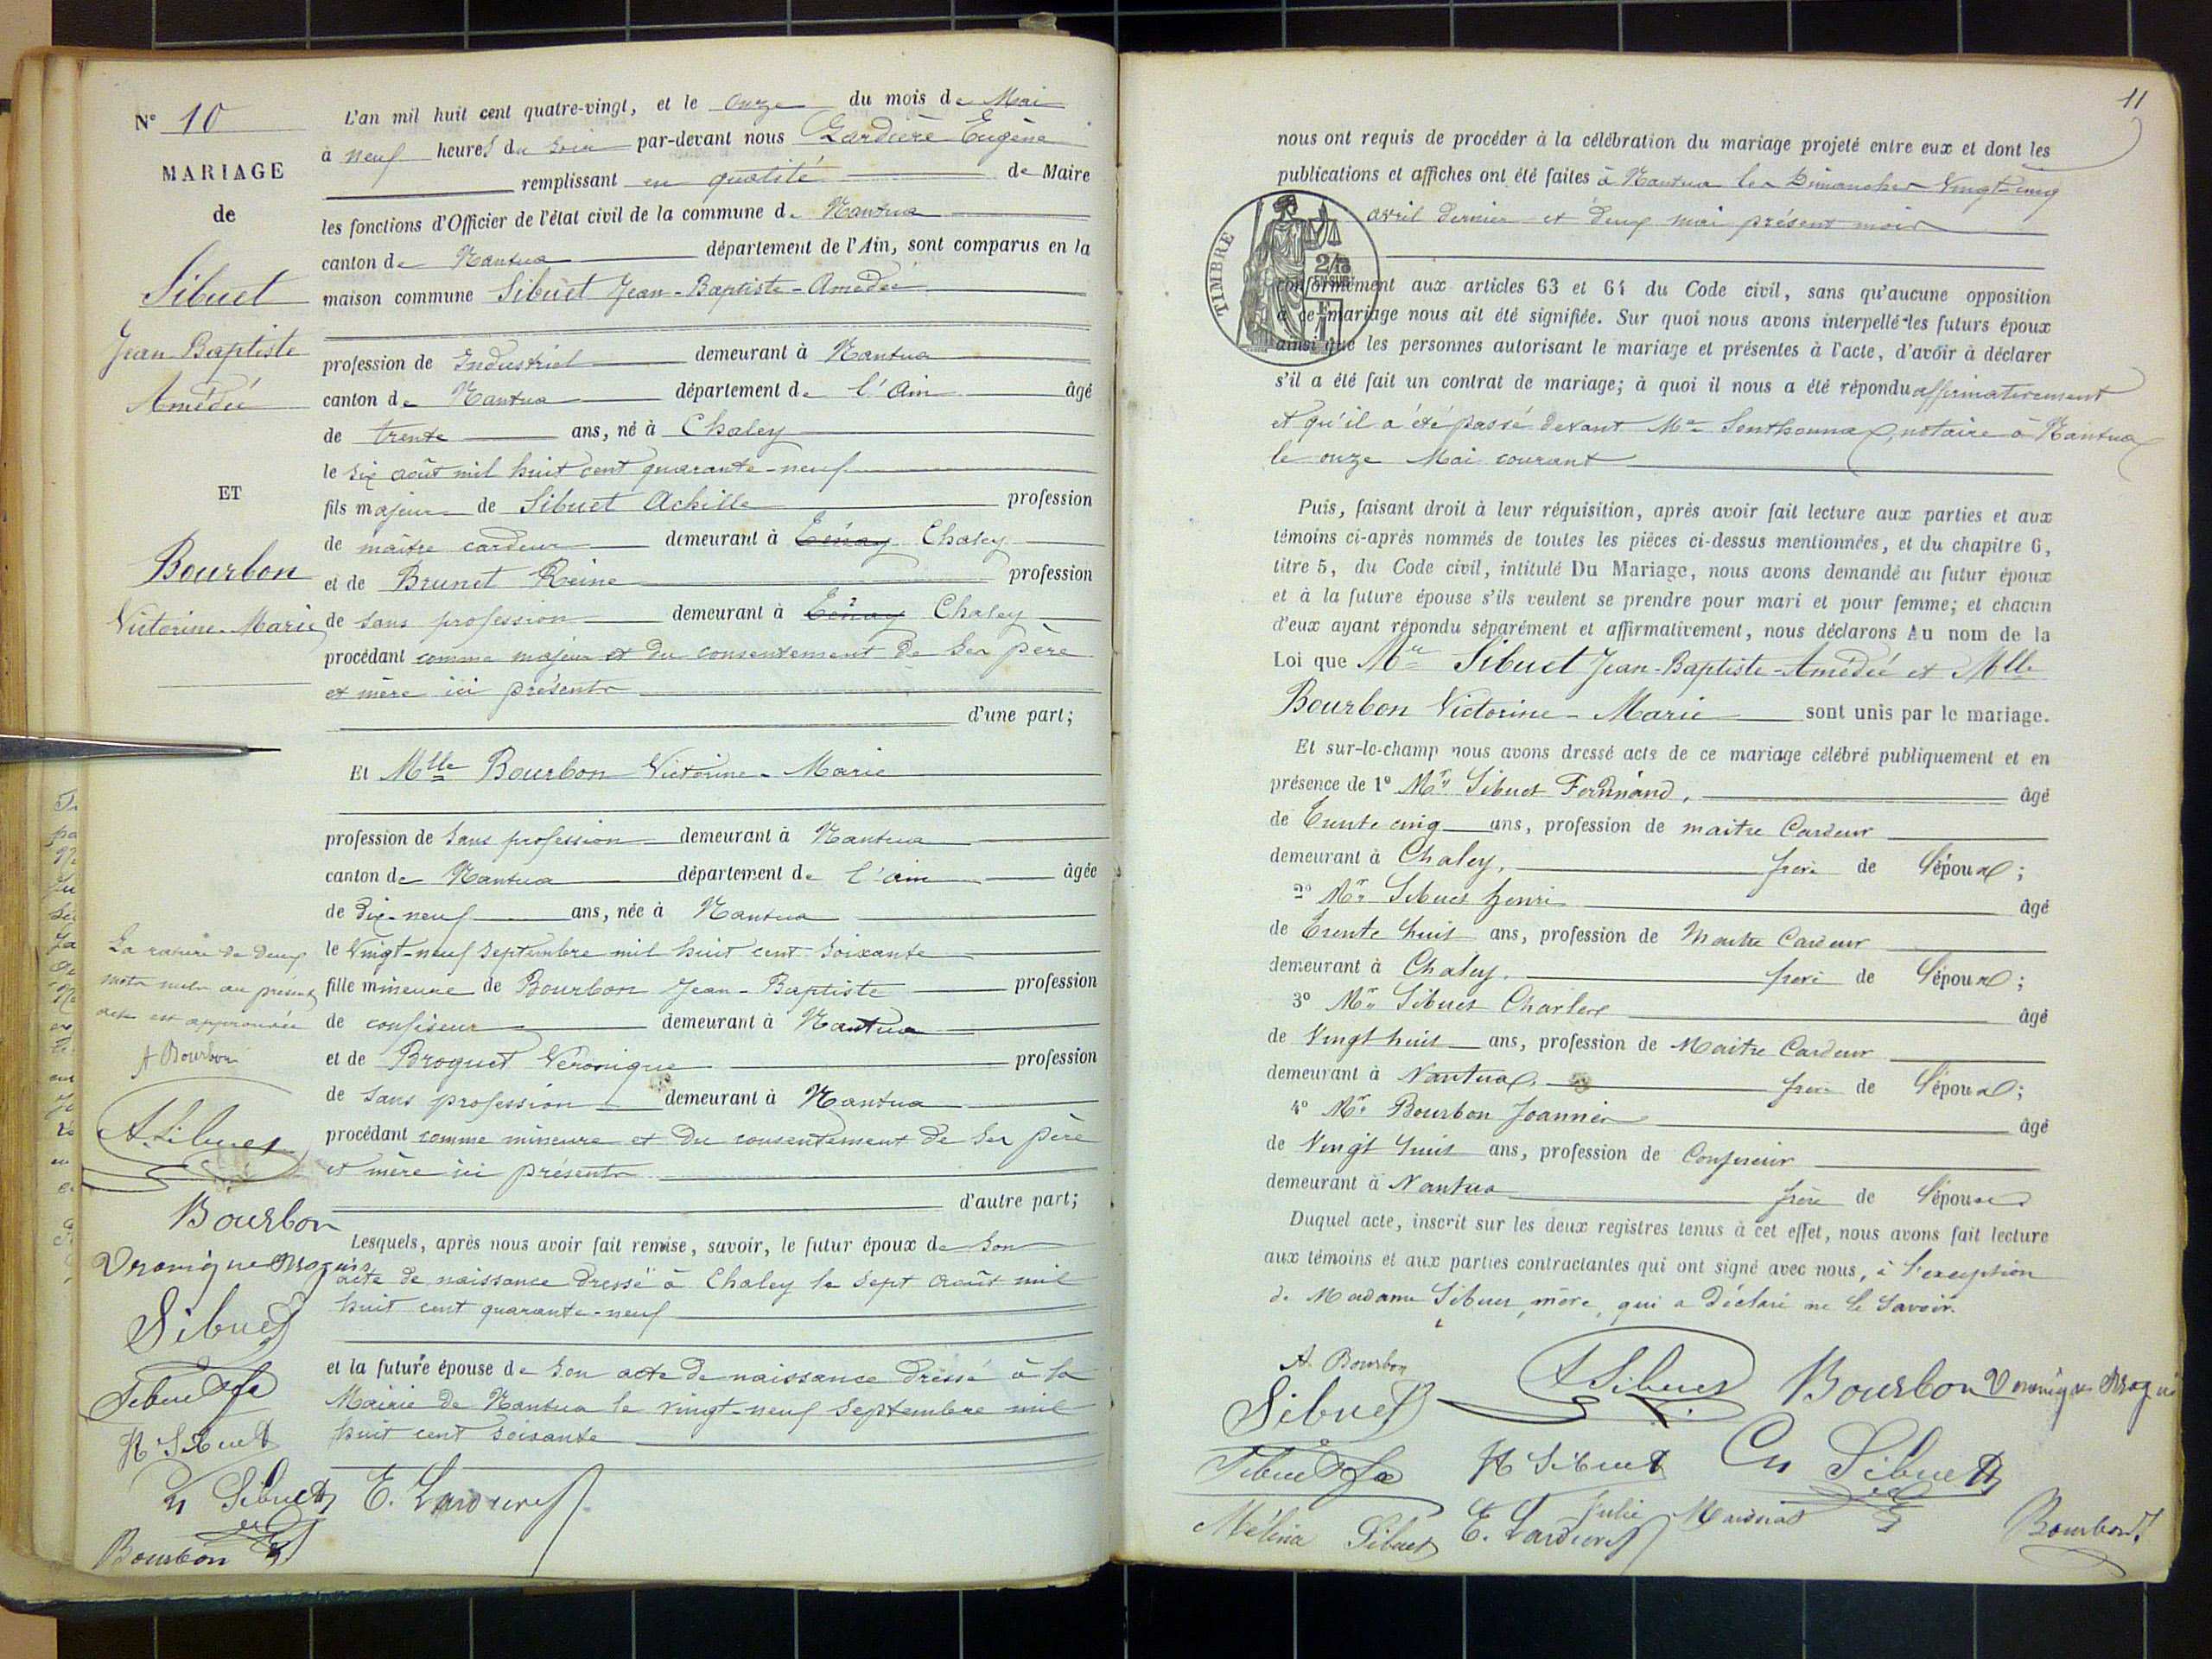 N° 10
MARIAGE
de
Sibuet
Jean-Baptiste
Amédée
ET
Bourbon
Victorine-Marie
La rature de deux
mots nuls au présent
acte est approuvée
A Bourbon
A. Sibuet
Bourbon
Veronique Broquis
Sibuet
Sibuet
H Sibuet
Ch Sibuet
Bourbon J
L'an mil huit cent quatre-vingt, et le onze du mois de Mai
à neuf heures du soir par-devant nous Lardière Eugène
remplissant en qualité de Maire
les fonctions d'Officier de l'état civil de la commune de Nantua
canton de Nantua département de l'Ain, sont comparus en la
maison commune Sibuet Jean-Baptiste-Amédée
profession de Industriel demeurant à Nantua
canton de Nantua département de l'Ain âgé
de trente ans, né à Chaley
le six août mil huit cent quarante-neuf
fils majeur de Sibuet Achille profession
de maître cardeur demeurant à Tenay Chaley
et de Brunet Reine profession
de sans profession demeurant à Tenay Chaley
procédant comme majeur et du consentement de ses père
et mère ici présents
d'une part;
Et Mlle Bourbon Victorine-Marie
profession de sans profession demeurant à Nantua
canton de Nantua département de l'ain âgée
de dix-neuf ans, née à Nantua
le vingt-neuf septembre mil huit cent soixante
fille mineure de Bourbon Jean-Baptiste profession
de confiseur demeurant à Nantua
et de Broquet Véronique profession
de sans profession demeurant à Nantua
procédant comme mineure et du consentement de ses père
et mère ici présents
d'autre part;
Lesquels, après nous avoir fait remise, savoir, le futur époux de son
acte de naissance dressé à Chaley le sept août mil
huit cent quarante-neuf
et la future épouse de son acte de naissance dressé à la
Mairie de Nantua le vingt-neuf septembre mil
huit cent soixante
E. Lardière
11
nous ont requis de procéder à la célébration du mariage projeté entre eux et dont les
publications et affiches ont été faites à Nantua les Dimanches vingt-cinq
avril dernier et deux mai présent mois
TIMBRE
conformément aux articles 63 et 64 du Code civil, sans qu'aucune opposition
à ce mariage nous ait été signifiée. Sur quoi nous avons interpellé les futurs époux
ainsi que les personnes autorisant le mariage et présentes à l'acte, d'avoir à déclarer
s'il a été fait un contrat de mariage; à quoi il nous a été répondu affirmativement
et qu'il a été passé devant Me Senthonnax, notaire à Nantua
le onze Mai courant
Puis, faisant droit à leur réquisition, après avoir fait lecture aux parties et aux
témoins ci-après nommés de toutes les pièces ci-dessus mentionnées, et du chapitre 6,
titre 5, du Code civil, intitulé Du Mariage, nous avons demandé au futur époux
et à la future épouse s'ils veulent se prendre pour mari et pour femme; et chacun
d'eux ayant répondu séparément et affirmativement, nous déclarons Au nom de la
Loi que Mr Sibuet Jean-Baptiste-Amédée et Mlle
Bourbon Victorine-Marie sont unis par le mariage.
Et sur-le-champ nous avons dressé acte de ce mariage célébré publiquement et en
présence de 1° Mr Sibuet Ferdinand, âgé
de Trente cinq ans, profession de maitre Cardeur
demeurant à Chaley, frère de l'époux;
2° Mr Sibuet Henri âgé
de Trente huit ans, profession de Maitre Cardeur
demeurant à Chaley. frère de l'époux;
3° Mr Sibuet Charles âgé
de Vingt huit ans, profession de Maitre Cardeur
demeurant à Nantua, frère de l'époux;
4° Mr Bourbon Joannier âgé
de Vingt huit ans, profession de Confiseur
demeurant à Nantua frère de l'épouse
Duquel acte, inscrit sur les deux registres tenus à cet effet, nous avons fait lecture
aux témoins et aux parties contractantes qui ont signé avec nous, à l'exception
de Madame Sibuet, mère, qui a déclaré ne le savoir.
A. Bourbon
A Sibuet Bourbon Veronique Broquis
Sibuet
Sibuet H Sibuet Ch Sibuet
Mélina Sibuet E. Lardière Julie Bourbon J